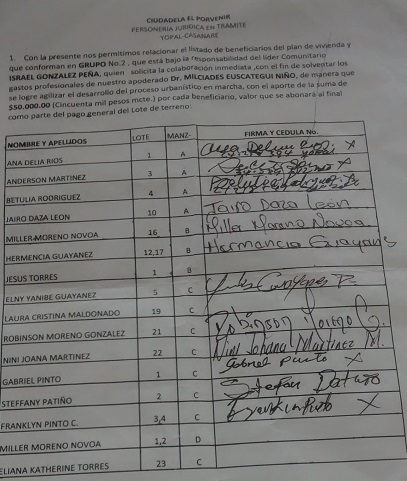 CIUDADELA EL PORVENIR
PERSONERIA JURIDICA EN TRAMITE
YOPAL-CASANARE
1. Con la presente nos permitimos relacionar el listado de beneficiarios del plan de vivienda y
que conforman en GRUPO No.2 , que está bajo la responsabilidad del líder Comunitario
ISRAEL GONZALEZ PEÑA, quien solicita la colaboración inmediata ,con el fin de solventar los
gastos profesionales de nuestro apoderado Dr. MILCIADES EUSCATEGUI NIÑO, de manera que
se logre agilizar el desarrollo del proceso urbanístico en marcha, con el aporte de la suma de
$50.000.00 (Cincuenta mil pesos mcte.) por cada beneficiario, valor que se abonará al final
como parte del pago general del Lote de terreno:
NOMBRE Y APELLIDOS LOTE MANZ- FIRMA Y CEDULA No.
ANA DELIA RIOS 1 A X
ANDERSON MARTINEZ 3 A X
BETULIA RODRIGUEZ 4 A
JAIRO DAZA LEON 10 A Jairo Daza Leon
MILLER MORENO NOVOA 16 B Miller Moreno Novoa
HERMENCIA GUAYANEZ 12,17 B Hermancia Guayanes
JESUS TORRES 1 B
ELNY YANIBE GUAYANEZ 5 C
LAURA CRISTINA MALDONADO 19 C
ROBINSON MORENO GONZALEZ 21 C Robinson Moreno G.
NINI JOANA MARTINEZ 22 C Nini Johana Martinez M.
GABRIEL PINTO 1 C Gabriel Pinto X
STEFFANY PATIÑO 2 C
FRANKLYN PINTO C. 3,4 C X
MILLER MORENO NOVOA 1,2 D
ELIANA KATHERINE TORRES 23 C